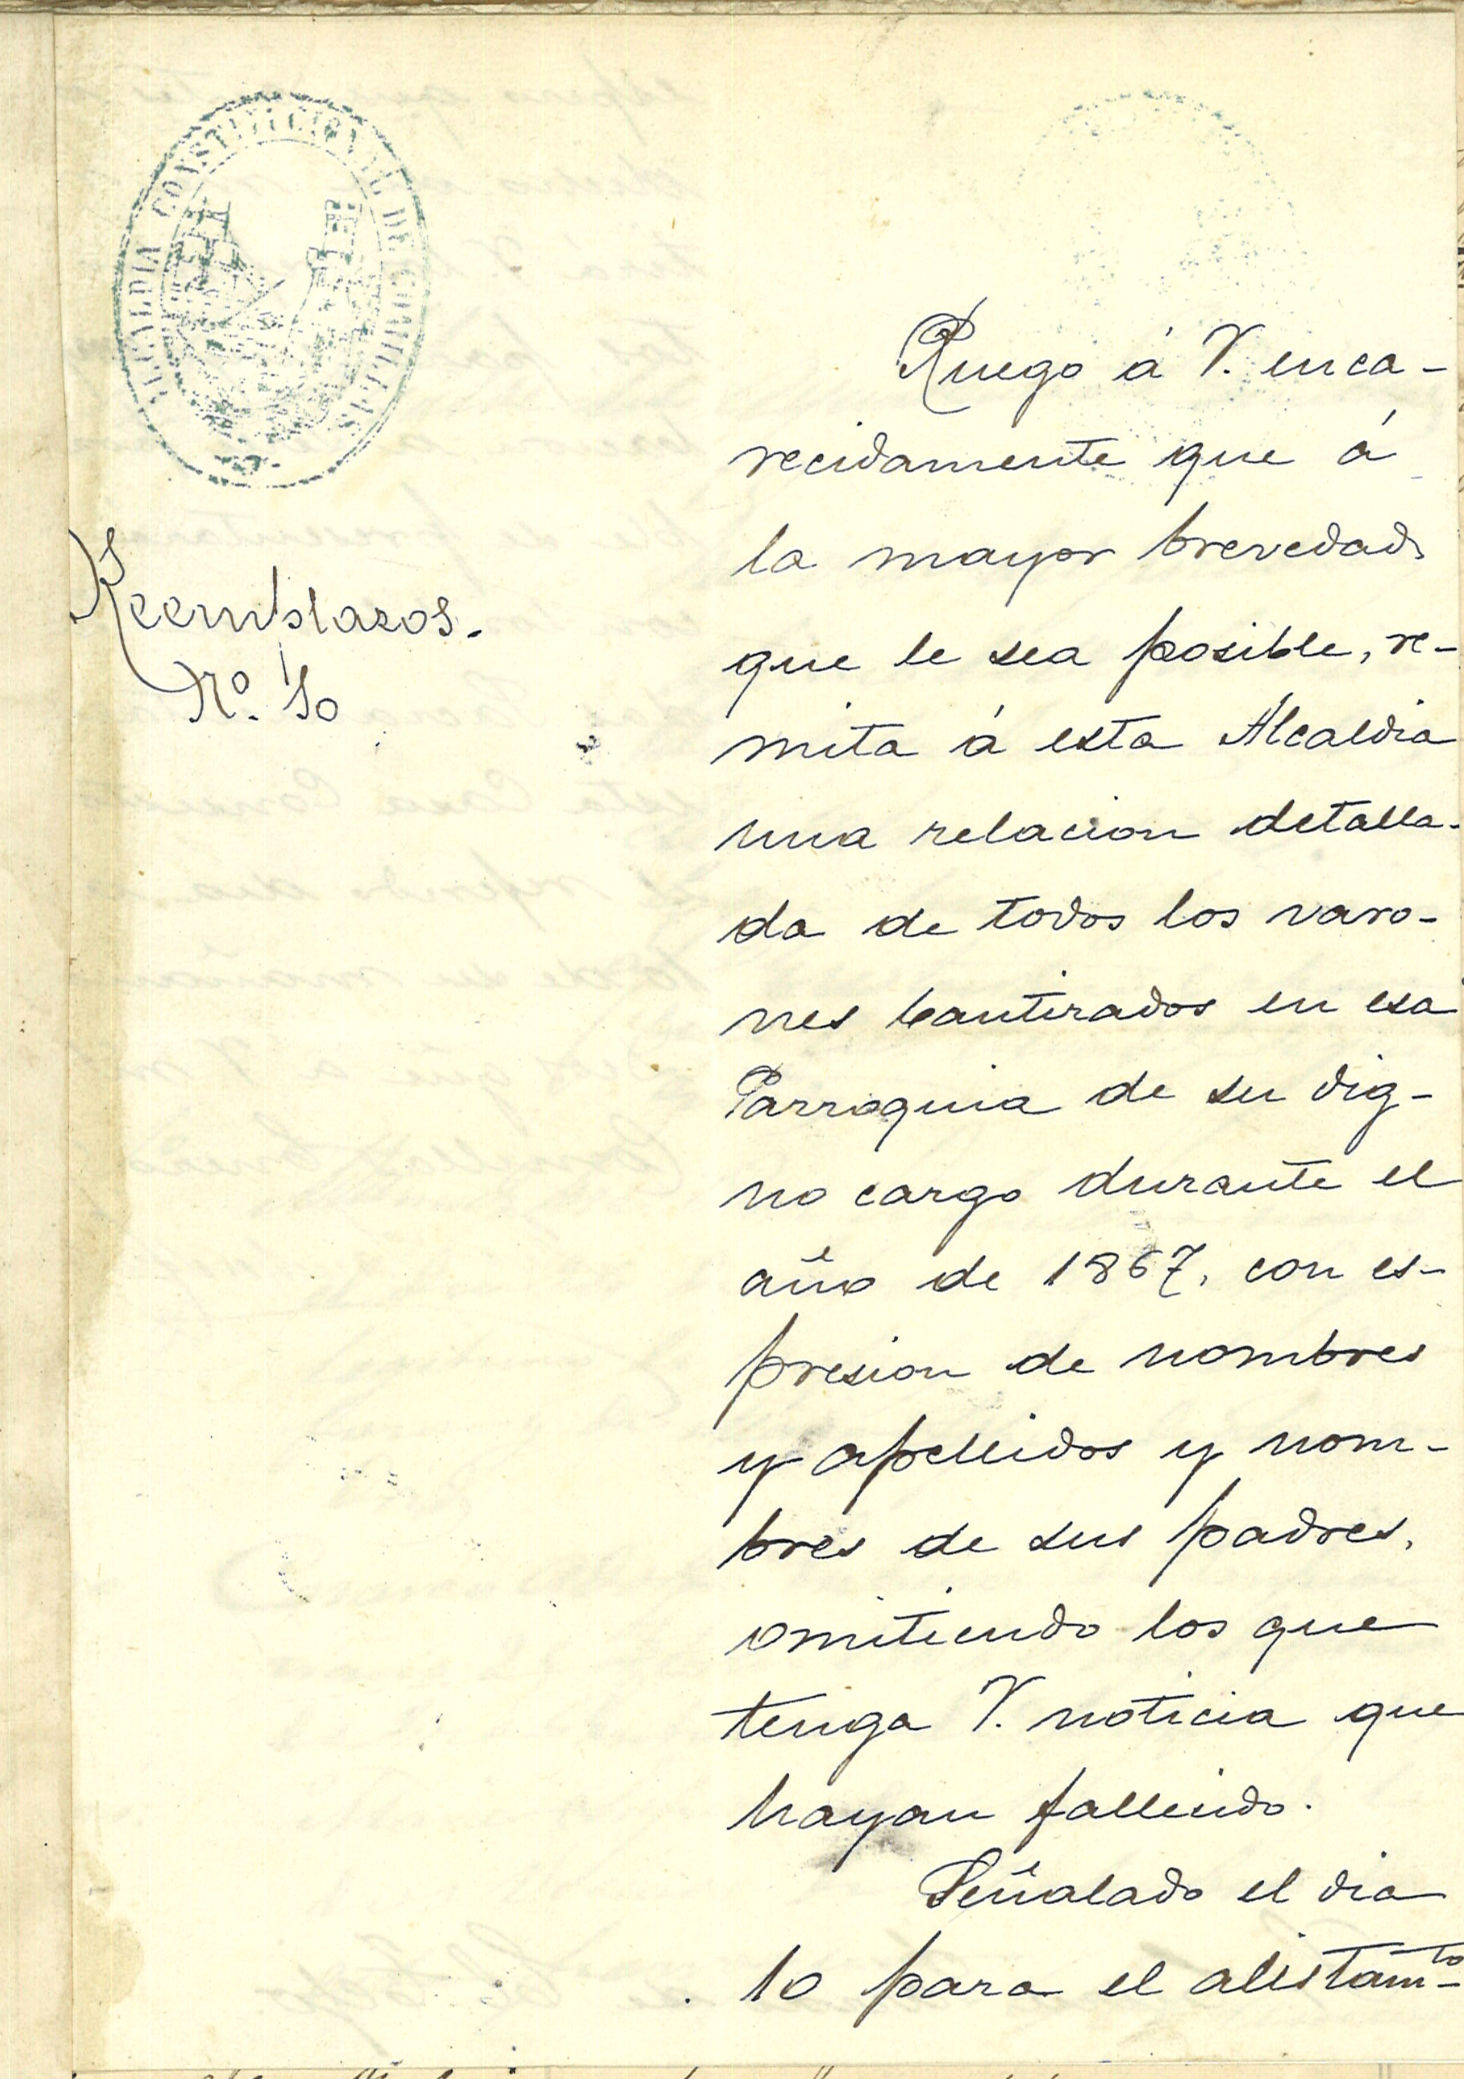 ALCALDIA CONSTITUCIONAL DE COMILLAS
Reemplazos.
Nº. 10
Ruego á V. enca-
recidamente que á
la mayor brevedad
que le sea posible, re-
mita á esta Alcaldia
una relacion detalla-
da de todos los varo-
nes bautizados en esa
Parroquia de su dig-
no cargo durante el
año de 1867, con es-
presion de nombres
y apellidos y nom-
bres de sus padres,
omitiendo los que
tenga V. noticia que
hayan fallecido.
Señalado el dia
10 para el alistamto